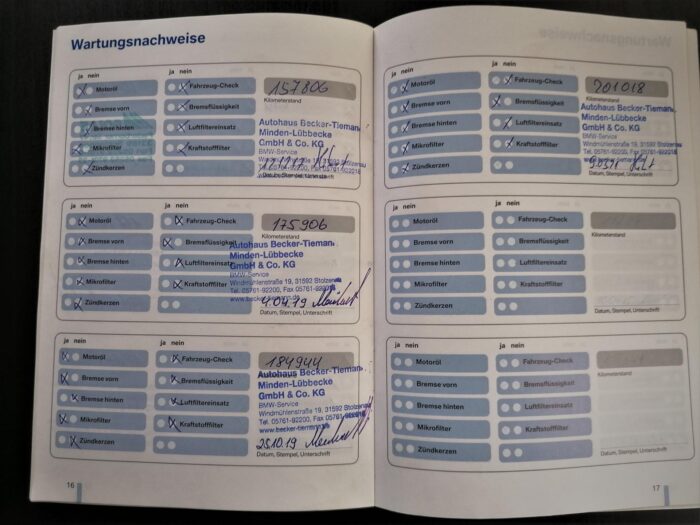 Wartungsnachweise
ja nein
ja nein
Motoröl
Fahrzeug-Check
157806
Bremse vorn
Bremsflüssigkeit
Kilometerstand
Bremse hinten
Luftfiltereinsatz
Mikrofilter
Kraftstofffilter
Zündkerzen
Autohaus Becker-Tieman
Minden-Lübbecke
GmbH & Co. KG
BMW-Service
Windmühlenstraße 19, 31592 Stolzenau
Tel. 05761-92200, Fax 05761-922018
Datum, Stempel, Unterschrift
ja nein
ja nein
Motoröl
Fahrzeug-Check
175906
Bremse vorn
Bremsflüssigkeit
Kilometerstand
Bremse hinten
Luftfiltereinsatz
Mikrofilter
Kraftstofffilter
Zündkerzen
Autohaus Becker-Tieman
Minden-Lübbecke
GmbH & Co. KG
BMW-Service
Windmühlenstraße 19, 31592 Stolzenau
Tel. 05761-92200, Fax 05761-922018
4.04.19
Datum, Stempel, Unterschrift
ja nein
ja nein
Motoröl
Fahrzeug-Check
184944
Bremse vorn
Bremsflüssigkeit
Bremse hinten
Luftfiltereinsatz
Mikrofilter
Kraftstofffilter
Zündkerzen
Autohaus Becker-Tieman
Minden-Lübbecke
GmbH & Co. KG
BMW-Service
Windmühlenstraße 19, 31592 Stolzenau
Tel. 05761-92200, Fax 05761-922018
25.10.19
Datum, Stempel, Unterschrift
16
ja nein
ja nein
Motoröl
Fahrzeug-Check
201018
Bremse vorn
Bremsflüssigkeit
Kilometerstand
Bremse hinten
Luftfiltereinsatz
Mikrofilter
Kraftstofffilter
Zündkerzen
Autohaus Becker-Tieman
Minden-Lübbecke
GmbH & Co. KG
BMW-Service
Windmühlenstraße 19, 31592 Stolzenau
Tel. 05761-92200, Fax 05761-922018
Datum, Stempel, Unterschrift
ja nein
ja nein
Motoröl
Fahrzeug-Check
Bremse vorn
Bremsflüssigkeit
Kilometerstand
Bremse hinten
Luftfiltereinsatz
Mikrofilter
Kraftstofffilter
Zündkerzen
Datum, Stempel, Unterschrift
ja nein
ja nein
Motoröl
Fahrzeug-Check
Bremse vorn
Bremsflüssigkeit
Kilometerstand
Bremse hinten
Luftfiltereinsatz
Mikrofilter
Kraftstofffilter
Zündkerzen
Datum, Stempel, Unterschrift
17